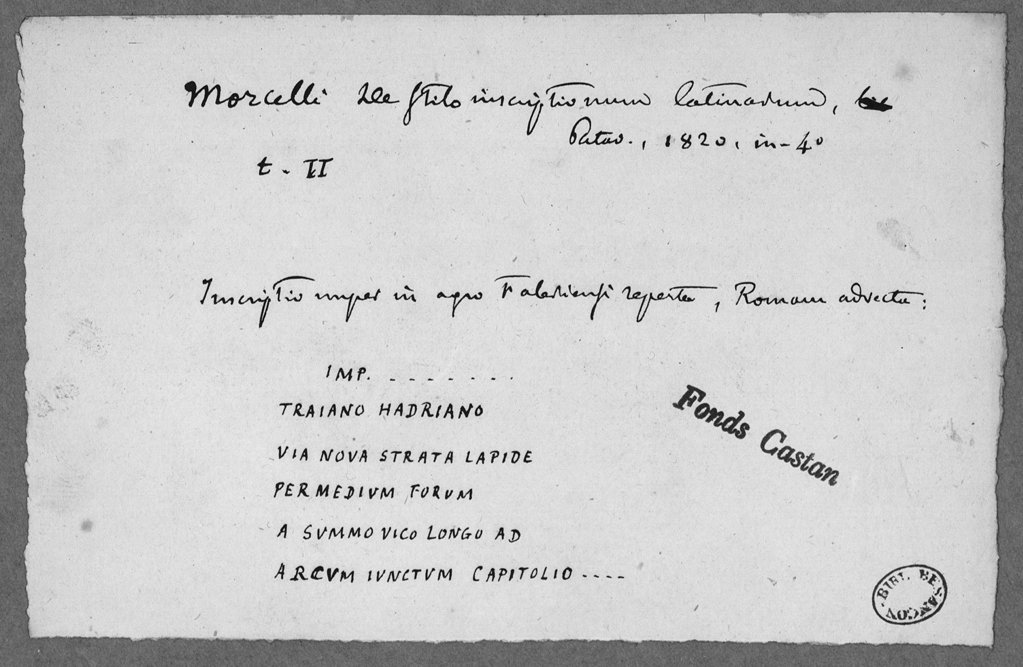 Morcelli De Stilo inscriptionum latinarum,
Patav., 1820, in-4o
t. II
Inscriptio nuper in agro Faleriensi reperta, Romam advecta:
IMP. . . . . . . .
TRAIANO HADRIANO
VIA NOVA STRATA LAPIDE
PER MEDIVM FORVM
A SVMMO VICO LONGO AD
ARCVM IVNCTVM CAPITOLIO ....
Fonds Castan
BIBL. BESANÇON